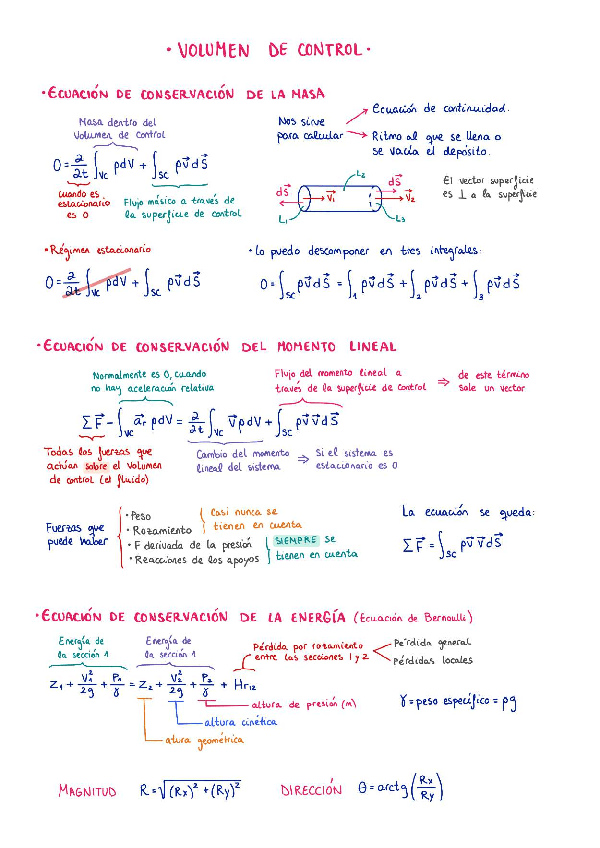 · VOLUMEN DE CONTROL ·
· ECUACIÓN DE CONSERVACIÓN DE LA MASA
Masa dentro del
Volumen de Control
0 = ∂/∂t ∫VC ρdV + ∫SC ρv⃗dS⃗
cuando es
estacionario
es 0
Flujo másico a través de
la superficie de control
Nos sirve
para calcular
Ecuación de continuidad.
Ritmo al que se llena o
se vacía el depósito.
L2
dS⃗
V⃗1
dS⃗
V⃗2
L1
L3
El vector superficie
es ⊥ a la superficie
· Régimen estacionario
0 = ∂/∂t ∫VC ρdV + ∫SC ρv⃗dS⃗
· Lo puedo descomponer en tres integrales:
0 = ∫SC ρv⃗dS⃗ = ∫1 ρv⃗dS⃗ + ∫2 ρv⃗dS⃗ + ∫3 ρv⃗dS⃗
· ECUACIÓN DE CONSERVACIÓN DEL MOMENTO LINEAL
Normalmente es 0, cuando
no hay aceleración relativa
Flujo del momento lineal a
través de la superficie de control
⇒ de este término
sale un vector
ΣF⃗ - ∫VC a⃗r ρdV = ∂/∂t ∫VC v⃗ρdV + ∫SC ρv⃗v⃗dS⃗
Todas las fuerzas que
actúan sobre el volumen
de control (el fluido)
Cambio del momento
lineal del sistema
⇒ Si el sistema es
estacionario es 0
Fuerzas que
puede haber
· Peso
· Rozamiento
· F derivada de la presión
· Reacciones de los apoyos
Casi nunca se
tienen en cuenta
SIEMPRE se
tienen en cuenta
La ecuación se queda:
ΣF⃗ = ∫SC ρv⃗v⃗dS⃗
· ECUACIÓN DE CONSERVACIÓN DE LA ENERGÍA (Ecuación de Bernoulli)
Energía de
la sección 1
Energía de
la sección 1
Pérdida por rozamiento
entre las secciones 1 y 2
Pérdida general
Pérdidas locales
Z1 + V1²/2g + P1/γ = Z2 + V2²/2g + P2/γ + Hr12
altura de presión (m)
altura cinética
atura geométrica
γ = peso específico = ρg
MAGNITUD R = √(Rx)² + (Ry)²
DIRECCIÓN θ = arctg(Rx/Ry)